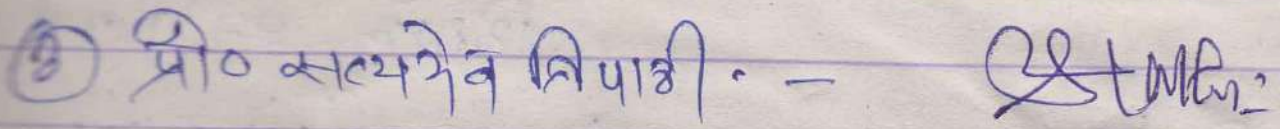 ③ प्रो० सत्यदेव त्रिपाठी . -